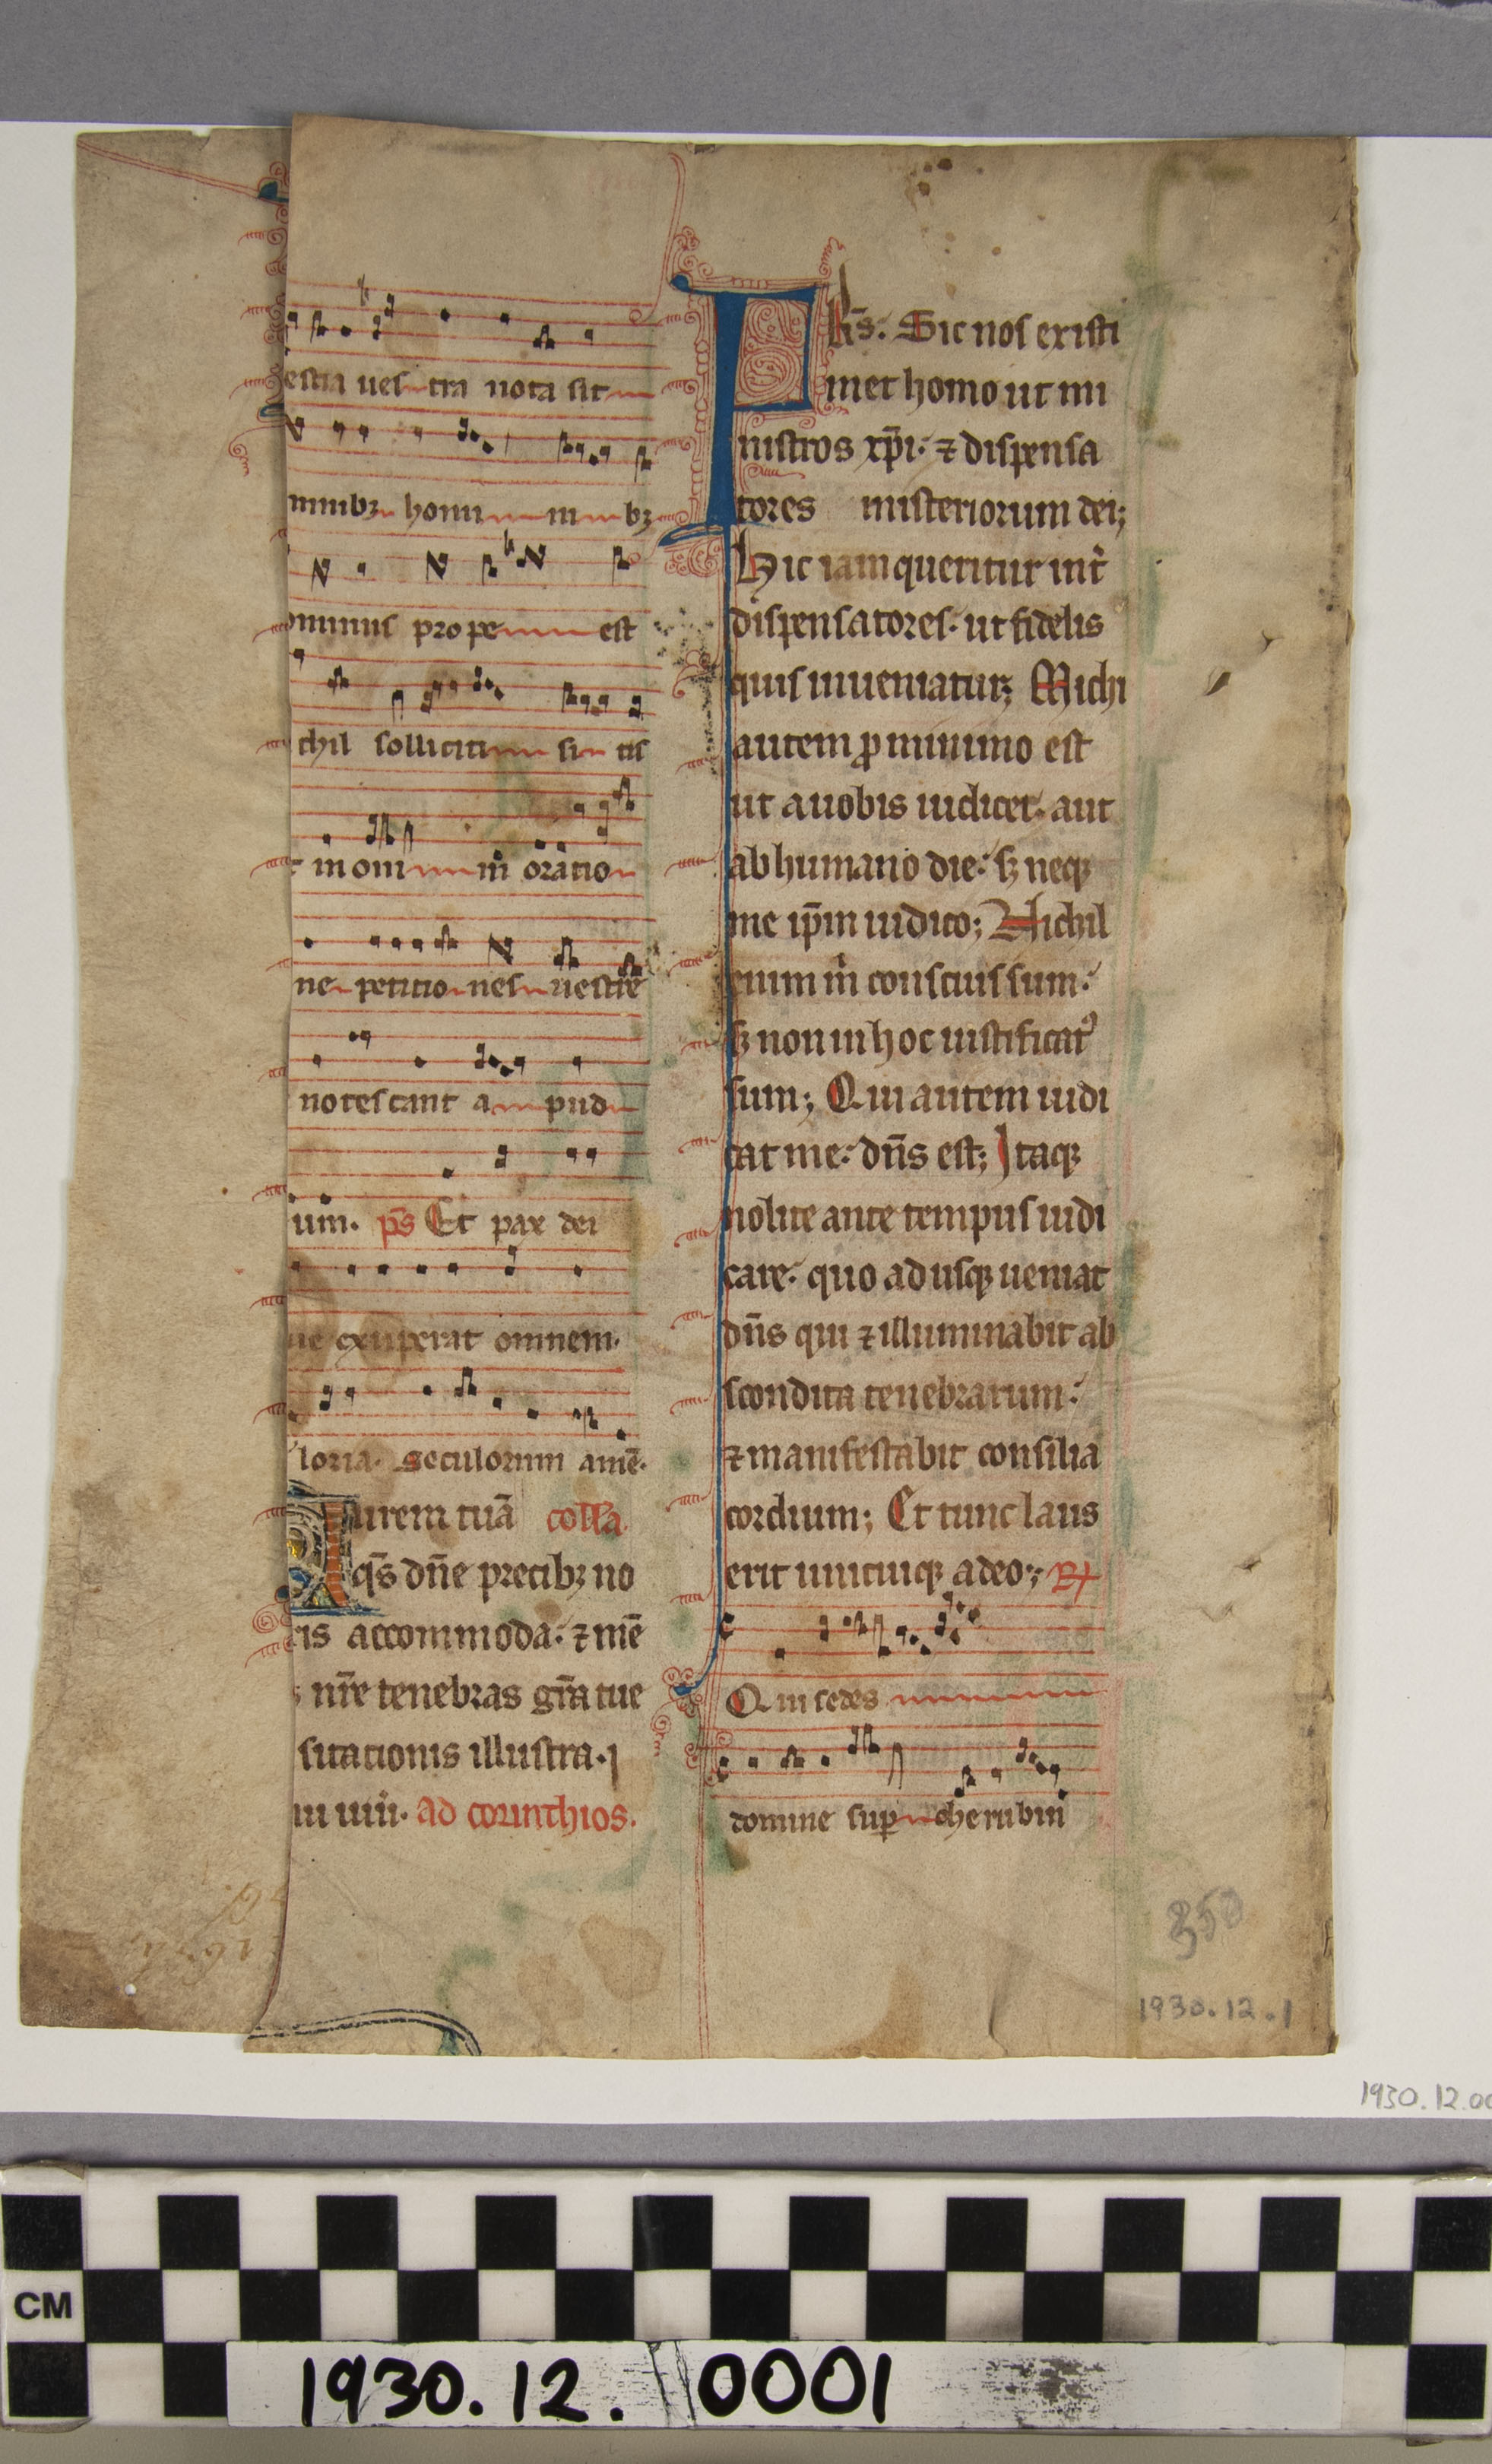 estia ues tra nota sit
minibꝫ homi ni bꝫ
ominus prope est
chil solliciti si tis
t in om ni oratio
ne petitio nes uestre
notescant a pud
um. p̄s Et pax dei
ue exuperat omnem.
loria. seculorum amē.
Aurem tuā coll̄a.
q̄s dn̄e precibꝫ no
ris accommoda. ⁊ mē
s nr̄e tenebras gr̄a tue
sitationis illustra.
ad corinthios.
Fr̄s. Sic nos existi
met homo ut mi
nistros xp̄i. ⁊ dispensa
tores misteriorum dei;
Hic iam queritur int̉
dispensatores. ut fidelis
quis inueniatur; Michi
autem ꝓ minimo est
ut a uobis iudicer. aut
ab humano die. sꝫ neqꝫ
me ip̄m iudico; Nichil
enim m̉ conscius sum.
sꝫ non in hoc iustificatꝰ
sum; Qui autem iudi
cat me. dn̄s est; Itaqꝫ
nolite ante tempus iudi
care. quo ad usqꝫ ueniat
dn̄s qui ⁊ illuminabit ab
scondita tenebrarum.
⁊ manifestabit consilia
cordium; Et tunc laus
erit unicuiqꝫ a deo; ℞
Qui sedes
domine suꝑ cherubin
350
1930.12.1
1930.12.00
CM
1930.12. 0001